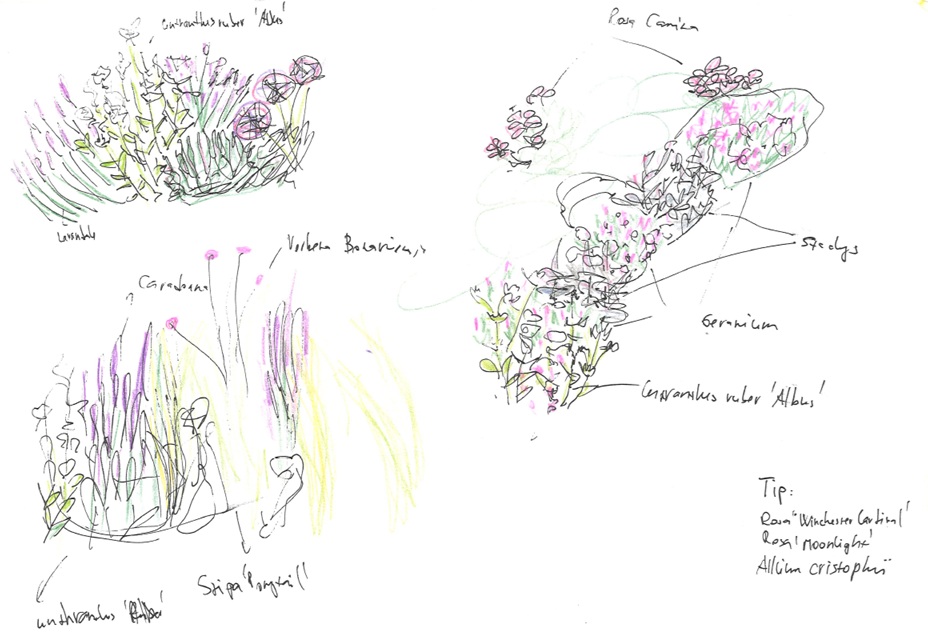 ruber 'Albus'
Lavendula
Rosa Canina
Stachys
Geranium
Centranthus ruber 'Albus'
Verbena Bonariensis
Caradonna
Stipa
Tip:
Rosa 'Winchester Cardinal'
Rosa 'Moonlight'
Allium cristophii